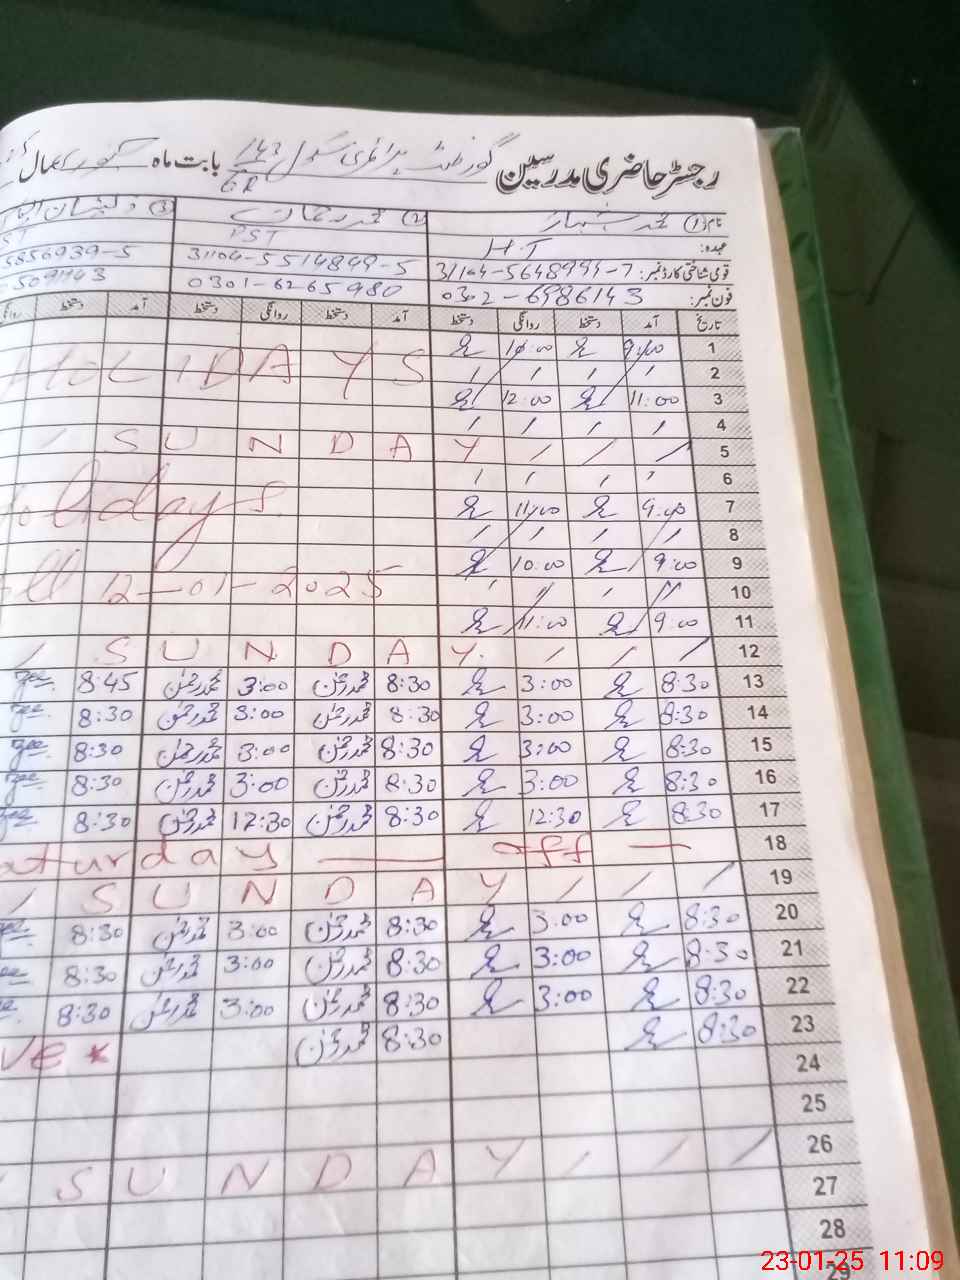 رجسٹر حاضری مدرسین گورنمنٹ پرائمری سکول 143/GR بابت ماہ جنوری سال
نام ① محمد شہباز ② محمد رحمان ③
عہدہ: H.T PST ST
قومی شناختی کارڈ نمبر: 31104-5514849-5 5856939-5
فون نمبر: 0302-6986143 0301-6265980 5091143
تاریخ آمد دستخط روانگی دستخط آمد دستخط روانگی دستخط آمد دستخط روانگی
1 9:00 10:00 HOLIDAYS
2
3 11:00 12:00
4
5 SUNDAY
6
7 9:00 11:00 Holidays
8
9 9:00 10:00
10 12-01-2025
11 9:00 11:00
12 SUNDAY
13 8:30 3:00 8:30 3:00 8:45
14 8:30 3:00 8:30 3:00 8:30
15 8:30 3:00 8:30 3:00 8:30
16 8:30 3:00 8:30 3:00 8:30
17 8:30 12:30 8:30 12:30 8:30
18 aturday — off —
19 SUNDAY
20 8:30 3:00 8:30 3:00 8:30
21 8:30 3:00 8:30 3:00 8:30
22 8:30 3:00 8:30 3:00 8:30
23 8:30 8:30 ve
24
25
26 SUNDAY
27
28
29
23-01-25 11:09